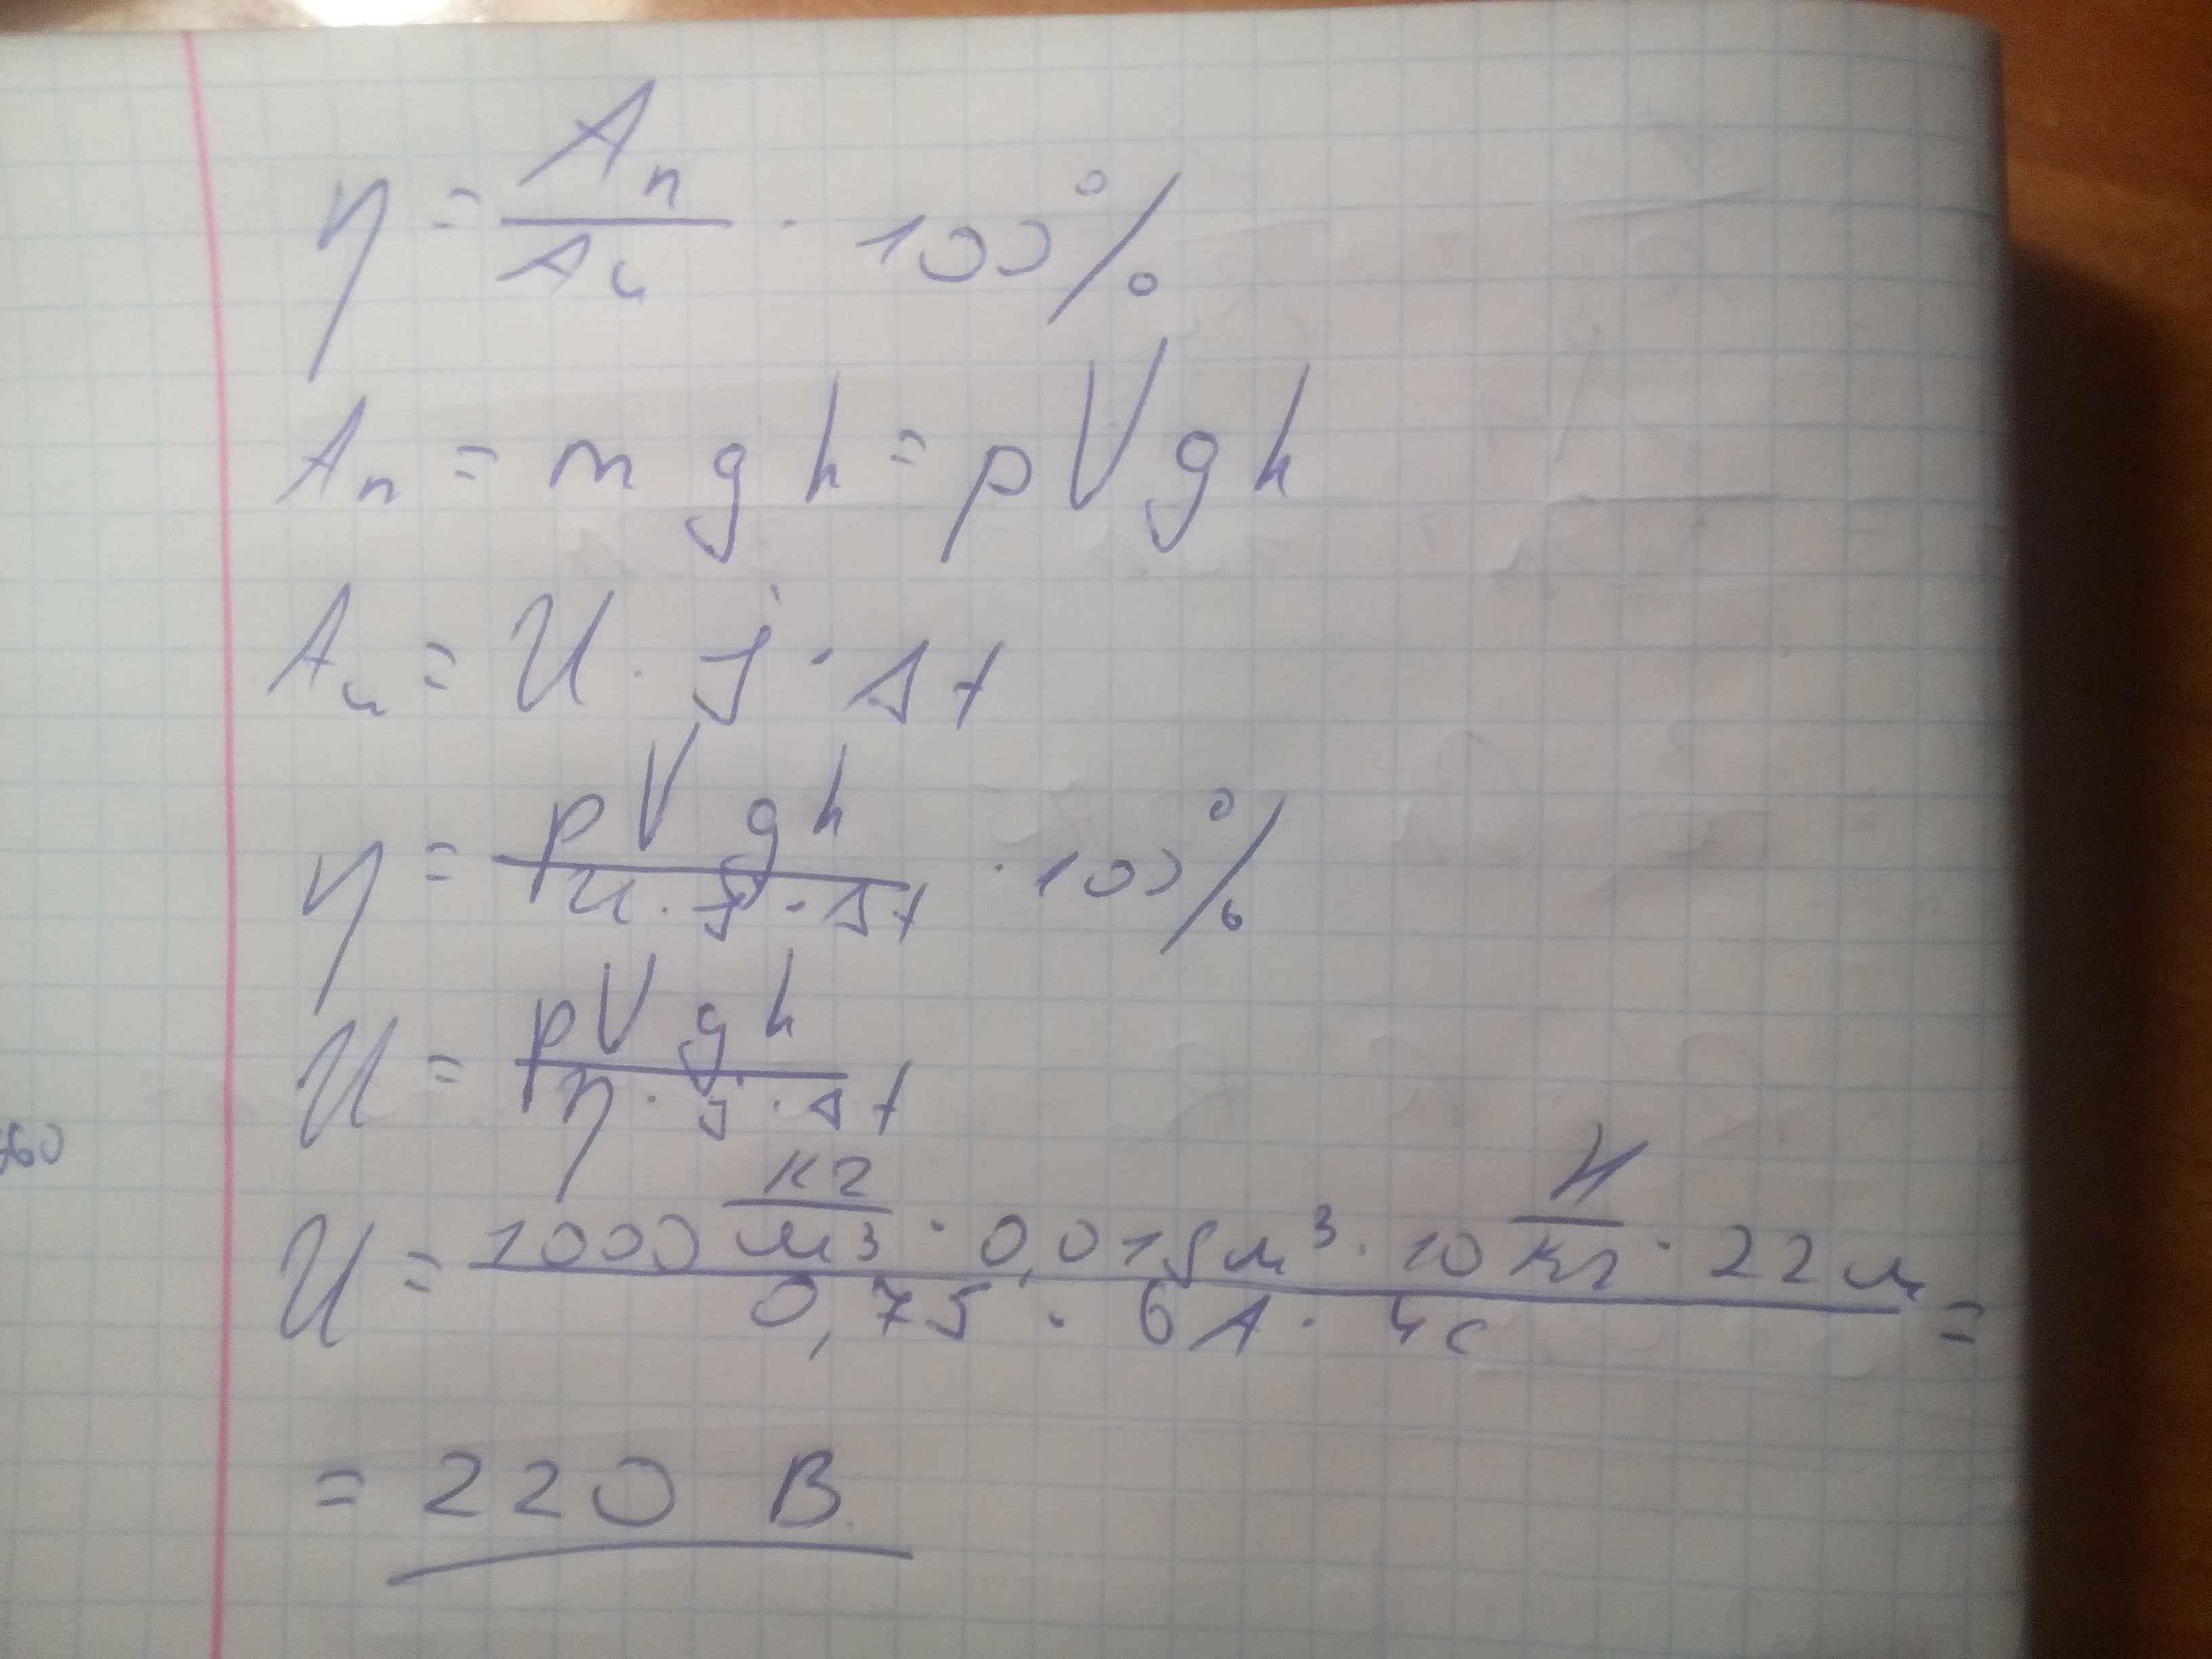 η = Aп / Aз · 100%
Aп = m g h = p V g h
Aз = U · J · Δt
η = p V g h / U · J · Δt · 100%
U = p V g h / η · J · Δt
U = 1000 кг/м3 · 0,015 м³ · 10 Н/кг · 22 м / 0,75 · 6 А · 4с =
= 220 В